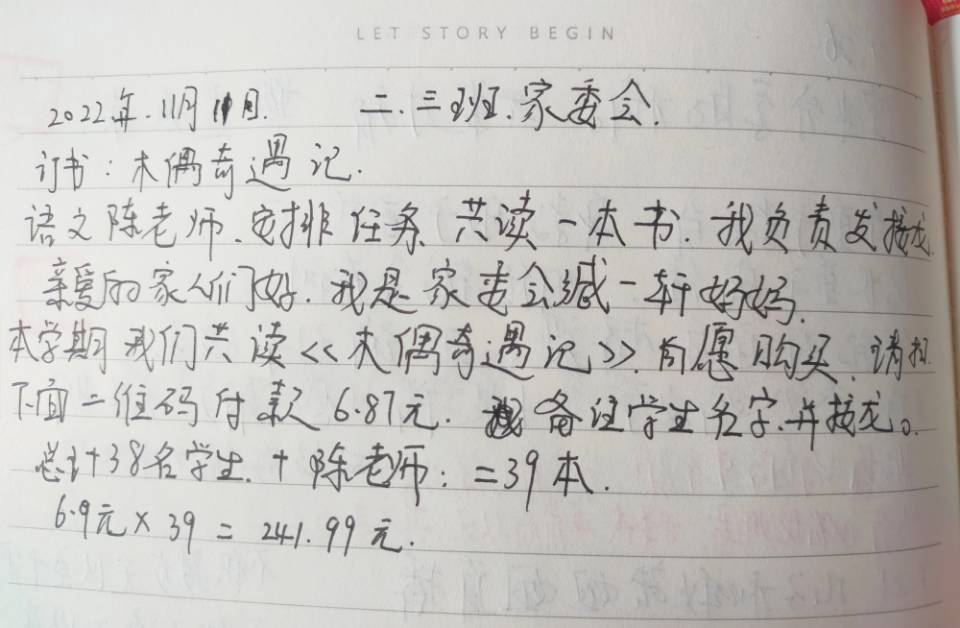 LET STORY BEGIN
2022年.11月11日. 二.三班.家委会.
订书:木偶奇遇记.
语文陈老师.安排任务.共读一本书.我负责发接龙.
亲爱的家人们好.我是家委会臧一轩妈妈.
本学期我们共读<<木偶奇遇记>>.自愿购买.请扫
下面二维码付款6.87元. 备注学生名字.并接龙。
总计38名学生.+陈老师:=39本.
6.9元×39=241.99元.